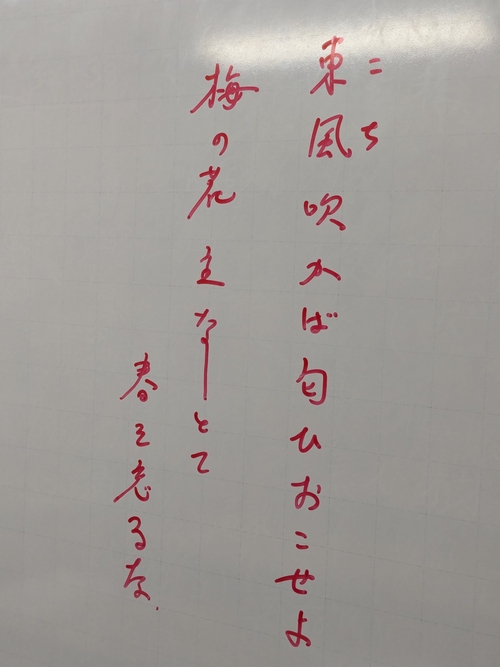 東風吹かば匂ひおこせよ
こち
梅の花主なしとて
春を忘るな